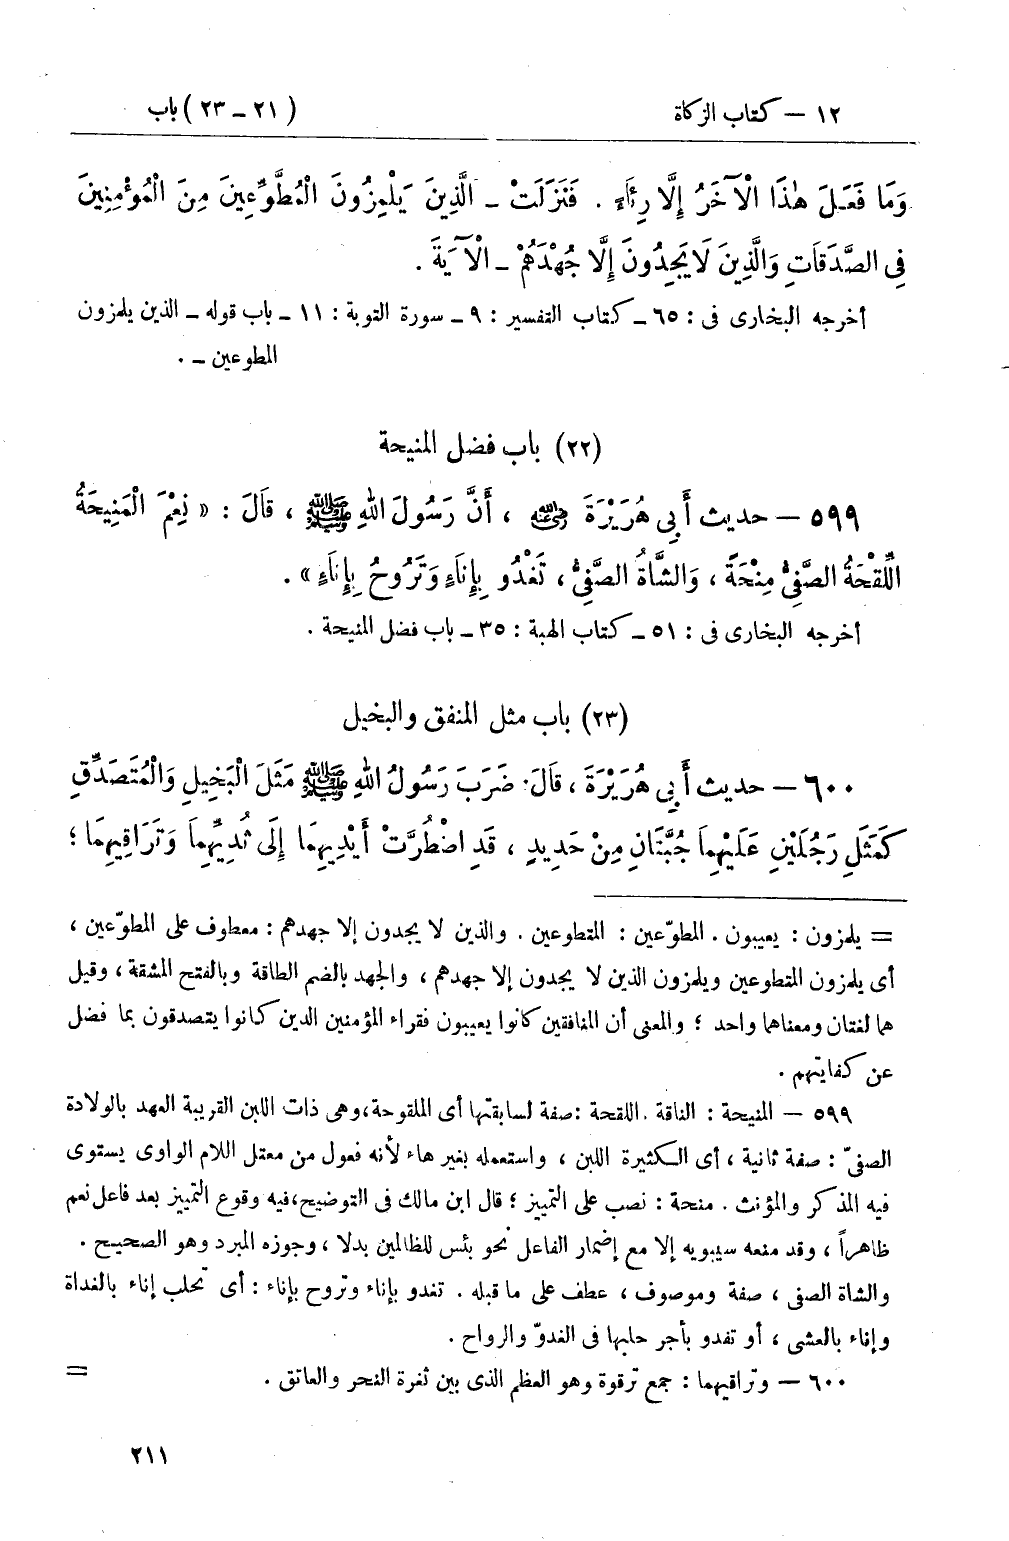 ١٢ — كتاب الزكاة
(٢١ – ٢٣) باب
وَمَا فَعَلَ هٰذَا الْآخَرُ إِلَّا رِئَاءً . فَنَزَلَتْ – الَّذِينَ يَلْمِزُونَ الْمُطَّوِّعِينَ مِنَ الْمُؤْمِنِينَ
فِي الصَّدَقَاتِ وَالَّذِينَ لَا يَجِدُونَ إِلَّا جُهْدَهُمْ – الْآيَةَ .
أخرجه البخارى فى : ٦٥ – كتاب التفسير : ٩ – سورة التوبة : ١١ – باب قوله – الذين يلمزون
المطوعين – .
(٢٢) باب فضل المنيحة
٥٩٩ — حديث أَبِي هُرَيْرَةَ رضي الله عنه ، أَنَّ رَسُولَ اللهِ ﷺ ، قَالَ : « نِعْمَ الْمَنِيحَةُ
اللِّقْحَةُ الصَّفِىُّ مِنْحَةً ، وَالشَّاةُ الصَّفِىُّ ، تَغْدُو بِإِنَاءِ وَتَرُوحُ بِإِنَاءِ » .
أخرجه البخارى فى : ٥١ – كتاب الهبة : ٣٥ – باب فضل المنيحة .
(٢٣) باب مثل المنفق والبخيل
٦٠٠ — حديث أَبِي هُرَيْرَةَ ، قَالَ : ضَرَبَ رَسُولُ اللهِ ﷺ مَثَلَ الْبَخِيلِ وَالْمُتَصَدِّقِ
كَمَثَلِ رَجُلَيْنِ عَلَيْهِمَا جُبَّتَانِ مِنْ حَدِيدٍ ، قَدِ اضْطُرَّتْ أَيْدِيهِمَا إِلَى ثُدِيِّهِمَا وَتَرَاقِيهِمَا ؛
= يلمزون : يعيبون . المطوّعين : المتطوعين . والذين لا يجدون إلا جهدهم : معطوف على المطوّعين ،
أى يلمزون المتطوعين ويلمزون الذين لا يجدون إلا جهدهم ، والجهد بالضم الطاقة وبالفتح المشقة ، وقيل
هما لغتان ومعناهما واحد ؛ والمعنى أن المنافقين كانوا يعيبون فقراء المؤمنين الذين كانوا يتصدقون بما فضل
عن كفايتهم .
٥٩٩ — المنيحة : الناقة . اللقحة : صفة لسابقتها أى الملقوحة، وهى ذات اللبن القريبة العهد بالولادة
الصفىّ : صفة ثانية ، أى الكثيرة اللبن ، واستعمله بغير هاء لأنه فعول من معتل اللام الواوى يستوى
فيه المذكر والمؤنث . منحة : نصب على التمييز ؛ قال ابن مالك فى التوضيح، فيه وقوع التمييز بعد فاعل نعم
ظاهراً ، وقد منعه سيبويه إلا مع إضمار الفاعل نحو بئس للظالمين بدلا ، وجوزه المبرد وهو الصحيح .
والشاة الصفى ، صفة وموصوف ، عطف على ما قبله . تغدو بإناء وتروح بإناء : أى تحلب إناء بالغداة
وإناء بالعشى ، أو تغدو بأجر حلبها فى الغدوّ والرواح .
٦٠٠ — وتراقيهما : جمع ترقوة وهو العظم الذى بين ثغرة النحر والعاتق .
=
٢١١